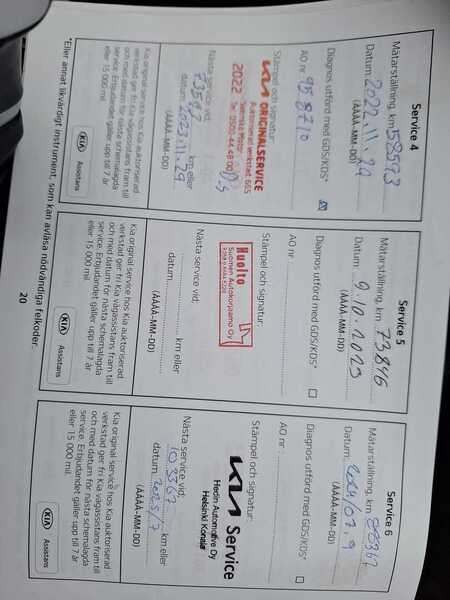 Service 4
Mätarställning, km 58593
Datum: 2022.11.29
(ÅÅÅÅ-MM-DD)
Diagnos utförd med GDS/KDS*
AO nr 958710
Stämpel och signatur:
KIA ORIGINALSERVICE
Auktoriserad verkstad 665
2022
Svenska Motor
Tel. 0500-44 48 00
Nästa service vid:
km eller
datum 2023.11.29
(ÅÅÅÅ-MM-DD)
Kia original service hos Kia auktoriserad
verkstad ger fri Kia vägassistans fram till
och med datum för nästa schemalagda
service. Erbjudandet gäller upp till 7 år
eller 15 000 mil.
KIA Assistans
Service 5
Mätarställning, km 73846
Datum: 9.10.2023
(ÅÅÅÅ-MM-DD)
Diagnos utförd med GDS/KDS*
AO nr
Stämpel och signatur:
Huolto
Suomen Autokorjaamo Oy
Nästa service vid:
km eller
datum
(ÅÅÅÅ-MM-DD)
Kia original service hos Kia auktoriserad
verkstad ger fri Kia vägassistans fram till
och med datum för nästa schemalagda
service. Erbjudandet gäller upp till 7 år
eller 15 000 mil.
KIA Assistans
Service 6
Mätarställning, km 88367
Datum: 2024/07.9
(ÅÅÅÅ-MM-DD)
Diagnos utförd med GDS/KDS*
AO nr
Stämpel och signatur:
KIA Service
Hedin Automotive Oy
Helsinki Konala
Nästa service vid:
103367 km eller
datum 2025/7
(ÅÅÅÅ-MM-DD)
Kia original service hos Kia auktoriserad
verkstad ger fri Kia vägassistans fram till
och med datum för nästa schemalagda
service. Erbjudandet gäller upp till 7 år
eller 15 000 mil.
KIA Assistans
*Eller annat likvärdigt instrument, som kan avläsa nödvändiga felkoder.
20